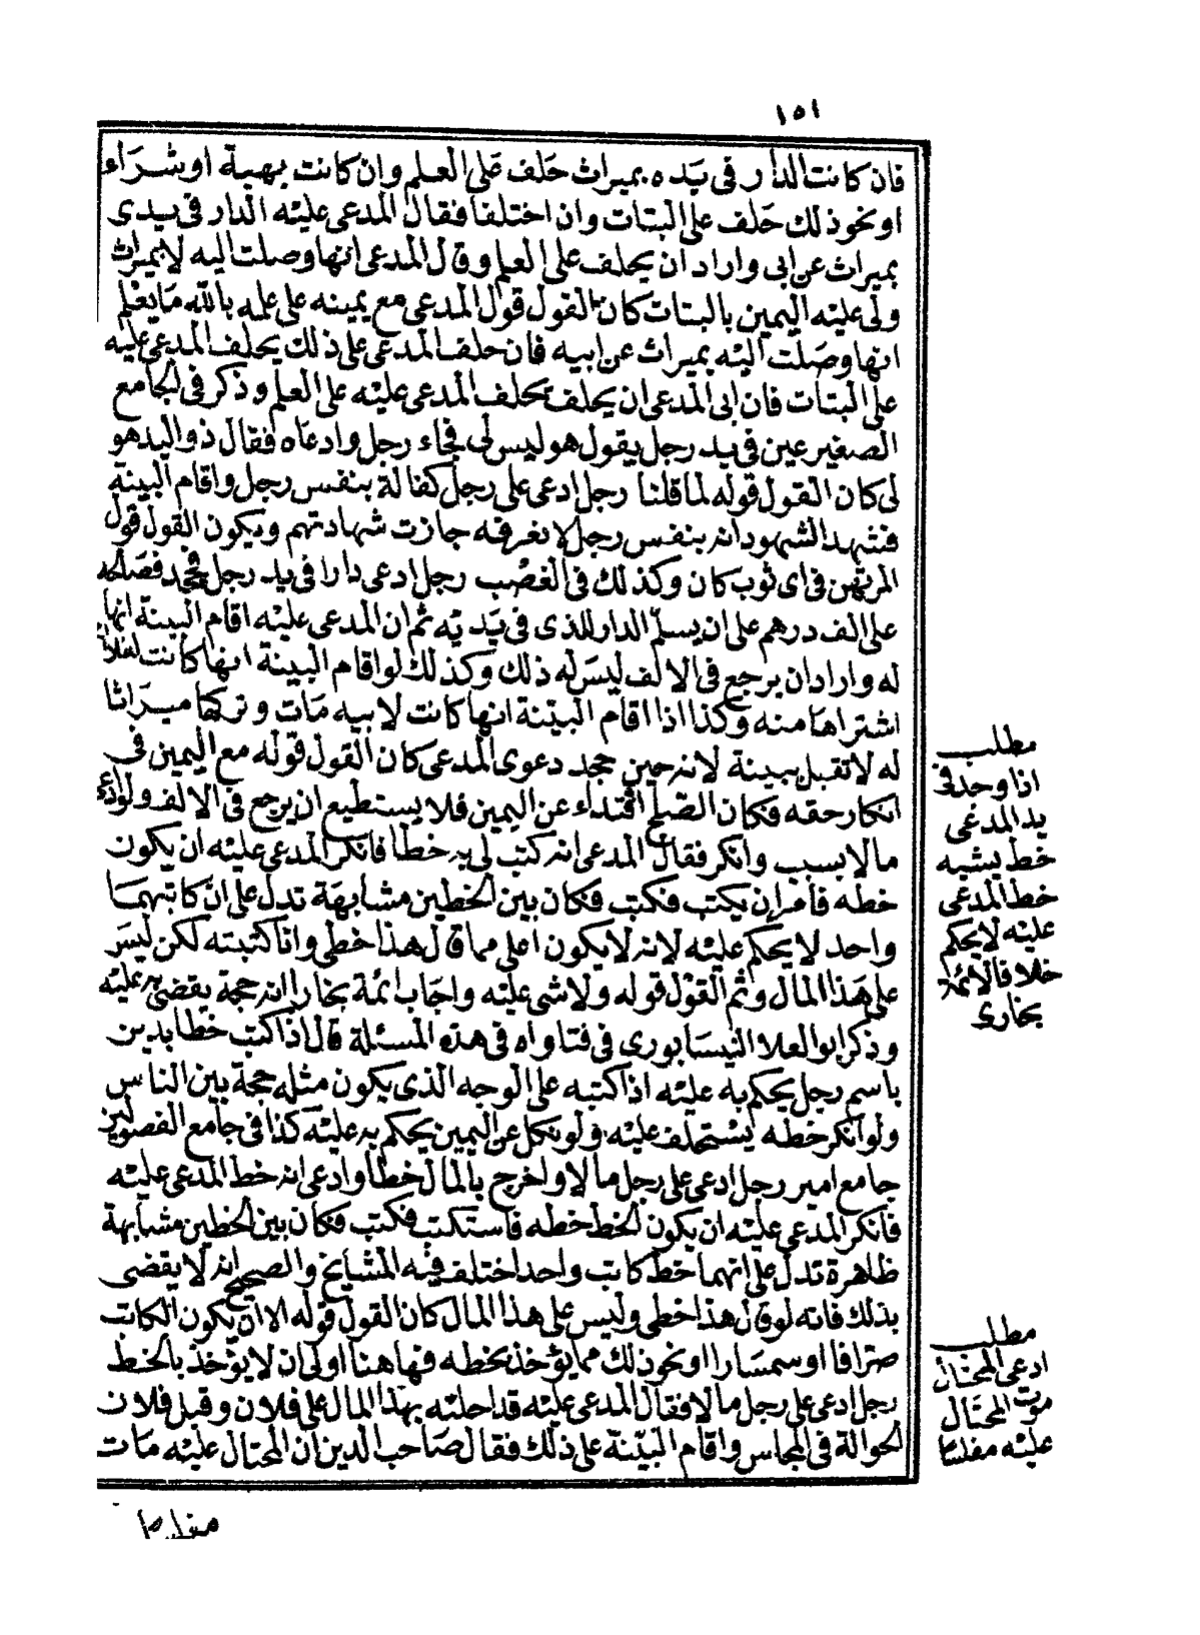 ١٥١
فان كانت الدار فى يده بميراث حلف على العلم وان كانت بهبة او شراء
او نحو ذلك حلف على البتات وان اختلفا فقال المدعى عليه الدار فى يدى
بميراث عن ابى واراد ان يحلف على العلم وقال المدعى انها وصلت اليه لا بميراث
ولى عليه اليمين بالبتات كان القول قول المدعى مع يمينه على علمه بالله ما يعلم
انها وصلت اليه بميراث عن ابيه فان حلف المدعى على ذلك يحلف المدعى عليه
على البتات فان ابى المدعى ان يحلف يحلف المدعى عليه على العلم وذكر فى الجامع
الصغير عين فى يد رجل يقول هو ليس لى فجاء رجل وادعاه فقال ذو اليد هو
لى كان القول قوله لما قلنا رجل ادعى على رجل كفالة بنفس رجل واقام البينة
فشهد الشهود انه بنفس رجل لا نعرفه جازت شهادتهم ويكون القول قول
المرتهن فى اى ثوب كان وكذلك فى الغصب رجل ادعى دارا فى يد رجل فجحد فصالحه
على الف درهم على ان يسلم الدار للذى فى يديه ثم ان المدعى عليه اقام البينة انها
له واراد ان يرجع فى الالف ليس له ذلك وكذلك لو اقام البينة انها كانت لفلان
اشتراها منه وكذا اذا اقام البينة انها كانت لابيه مات وتركها ميراثا
له لا تقبل بينة لانه حين جحد دعوى المدعى كان القول قوله مع اليمين فى
انكار حقه فكان الصلح افتداء عن اليمين فلا يستطيع ان يرجع فى الالف ولو ادعى
مالا بسبب وانكر فقال المدعى انه كتب لى به خطا فانكر المدعى عليه ان يكون
خطه فامر ان يكتب فكتب فكان بين الخطين مشابهة تدل على ان كاتبهما
واحد لا يحكم عليه لانه لا يكون اعلى مما قال هذا خطى وانا كتبته لكن ليس
على هذا المال وثم القول قوله ولا شى عليه واجاب ائمة بخارا انه حجة يقضى به عليه
وذكر ابو العلا النيسابورى فى فتاواه فى هذه المسئلة قال اذا كتب خطا بدين
باسم رجل يحكم به عليه اذا كتبه على الوجه الذى يكون مثله حجة بين الناس
ولو انكر خطه يستحلف عليه ولو نكل عن اليمين يحكم به عليه كذا فى جامع الفصولين
جامع امير رجل ادعى على رجل مالا واخرج بالمال خطا وادعى انه خط المدعى عليه
فانكر المدعى عليه ان يكون الخط خطه فاستكتب فكتب فكان بين الخطين مشابهة
ظاهرة تدل على انهما خط كاتب واحد اختلف فيه المشايخ والصحيح انه لا يقضى
بذلك فانه لو قال هذا خطى وليس على هذا المال كان القول قوله الا ان يكون الكاتب
صرافا او سمسارا او نحو ذلك مما يؤخذ بخطه فهاهنا اولى ان لا يؤخذ بالخط
رجل ادعى على رجل مالا فقال المدعى عليه قد احلته بهذا المال على فلان وقبل فلان
الحوالة فى المجلس واقام البينة على ذلك فقال صاحب الدين ان المحتال عليه مات
مطلب
اذا وجد فى
يد المدعى
خط يشبه
خط المدعى
عليه لا يحكم
خلافا لائمة
بخارى
مطلب
ادعى المحتال
موت المحتال
عليه مفلسا
مفلسا